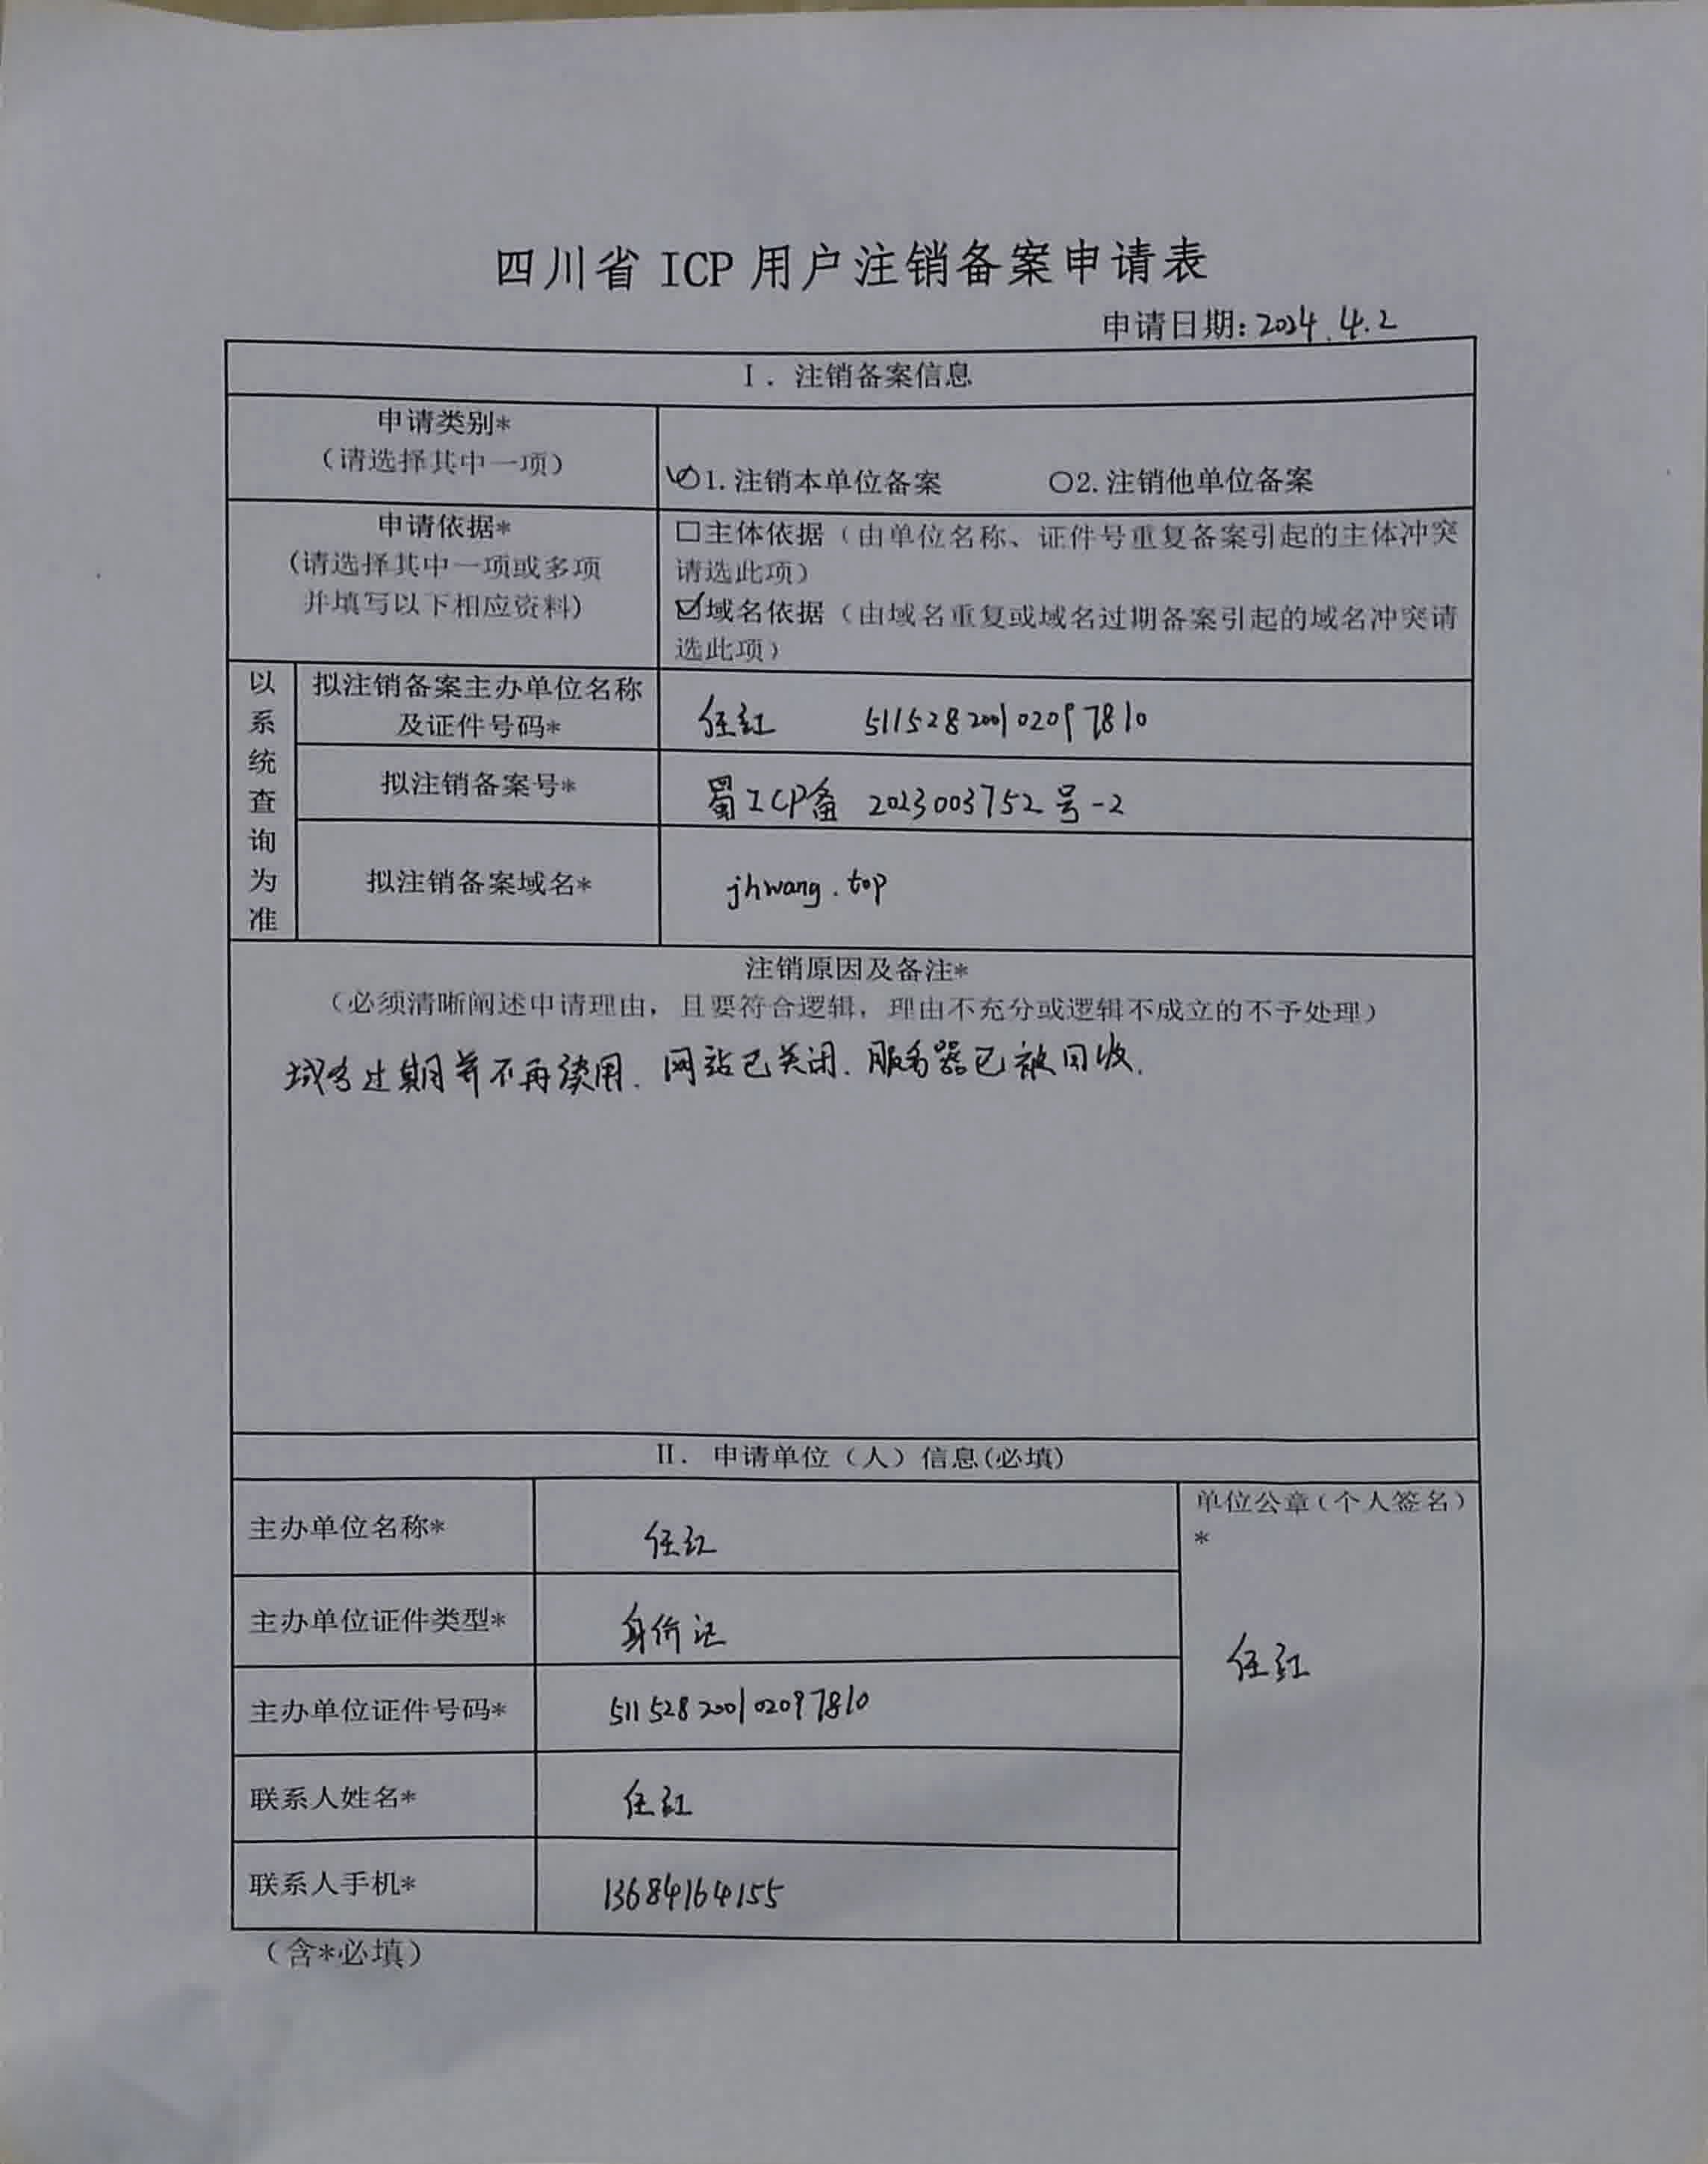 四川省 ICP 用户注销备案申请表
申请日期：2024.4.2
I．注销备案信息
申请类别*
（请选择其中一项）
✓○1.注销本单位备案 ○2.注销他单位备案
申请依据*
(请选择其中一项或多项
并填写以下相应资料)
□主体依据（由单位名称、证件号重复备案引起的主体冲突
请选此项）
☑域名依据（由域名重复或域名过期备案引起的域名冲突请
选此项）
以系统查询为准
拟注销备案主办单位名称
及证件号码*
任红 511528200102097810
拟注销备案号*
蜀ICP备 2023003752号-2
拟注销备案域名*
jhwang.top
注销原因及备注*
（必须清晰阐述申请理由，且要符合逻辑，理由不充分或逻辑不成立的不予处理）
域名过期并不再续用．网站已关闭．服务器已被回收．
II．申请单位（人）信息(必填)
主办单位名称*
任红
单位公章（个人签名）
*
任红
主办单位证件类型*
身份证
主办单位证件号码*
511528200102097810
联系人姓名*
任红
联系人手机*
13684164155
（含*必填）